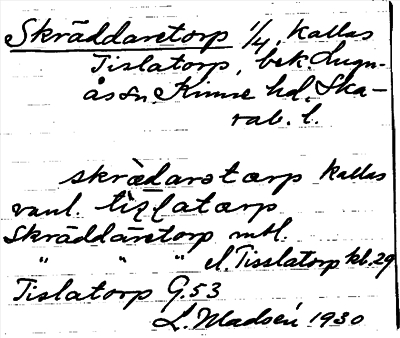 Skräddaretorp 1/4, kallas
Tislatorp, bek. Lugn-
ås sn. Kinne hd. Ska-
rab. l.
skrædarstɔrp kallas
vanl. tiʂlatɔrp
Skräddaretorp mtl.
" " " el. Tisslatorp kb. 29
Tislatorp G.53
L. Madsén 1930